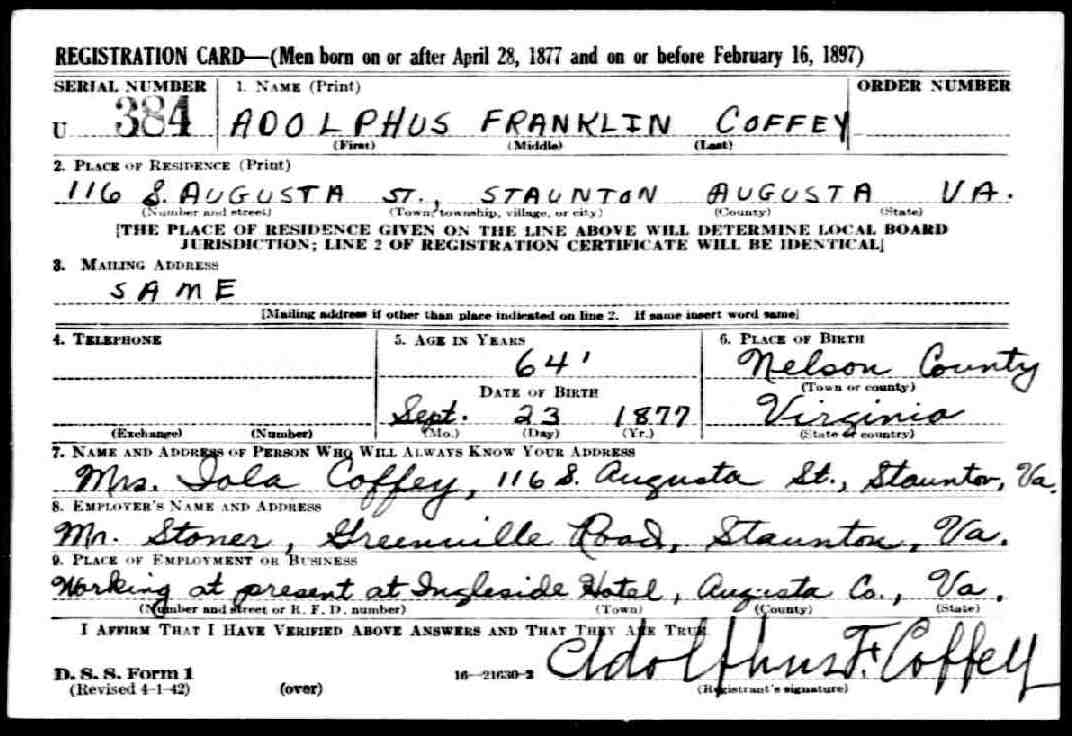 REGISTRATION CARD—(Men born on or after April 28, 1877 and on or before February 16, 1897)
SERIAL NUMBER 1. NAME (Print) ORDER NUMBER
U 384 ADOLPHUS FRANKLIN COFFEY
(First) (Middle) (Last)
2. PLACE OF RESIDENCE (Print)
116 S. AUGUSTA ST., STAUNTON AUGUSTA VA.
(Number and street) (Town, township, village, or city) (County) (State)
[THE PLACE OF RESIDENCE GIVEN ON THE LINE ABOVE WILL DETERMINE LOCAL BOARD
JURISDICTION; LINE 2 OF REGISTRATION CERTIFICATE WILL BE IDENTICAL]
3. MAILING ADDRESS
SAME
[Mailing address if other than place indicated on line 2. If same insert word same]
4. TELEPHONE 5. AGE IN YEARS 6. PLACE OF BIRTH
64 Nelson County
(Town or county)
DATE OF BIRTH
Sept. 23 1877 Virginia
(Exchange) (Number) (Mo.) (Day) (Yr.) (State or country)
7. NAME AND ADDRESS OF PERSON WHO WILL ALWAYS KNOW YOUR ADDRESS
Mrs. Iola Coffey, 116 S. Augusta St., Staunton, Va.
8. EMPLOYER'S NAME AND ADDRESS
Mr. Stoner, Greenville Road, Staunton, Va.
9. PLACE OF EMPLOYMENT OR BUSINESS
Working at present at Ingleside Hotel, Augusta Co., Va.
(Number and street or R. F. D. number) (Town) (County) (State)
I AFFIRM THAT I HAVE VERIFIED ABOVE ANSWERS AND THAT THEY ARE TRUE.
Adolphus F. Coffey
D. S. S. Form 1
(Revised 4-1-42) (over) 16—21630-2 (Registrant's signature)